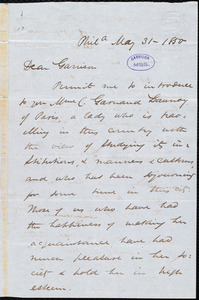 Phila May 31 - 1850
Dear Garrison
Permit me to introduce
to you Mme C
of Paris, a lady who is trav-
elling in this country with
the view of studying its in-
stitutions, & manners & customs,
and has been sojourning
for some time in this city.
Those of us who have had
the happiness of making her
acquaintance have had
much pleasure in her so-
ciety & hold her in high
esteem.